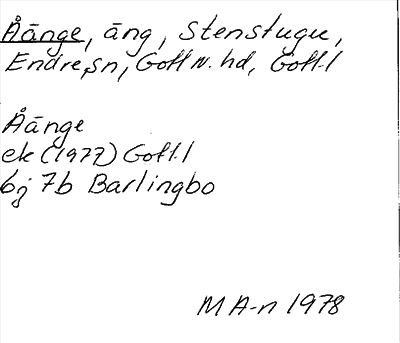 Åänge, äng, Stenstugu,
Endre sn, Gotl. N. hd, Gotl. l
Åänge
ek (1977) Gotl. l
bj 7b Barlingbo
M A-n 1978